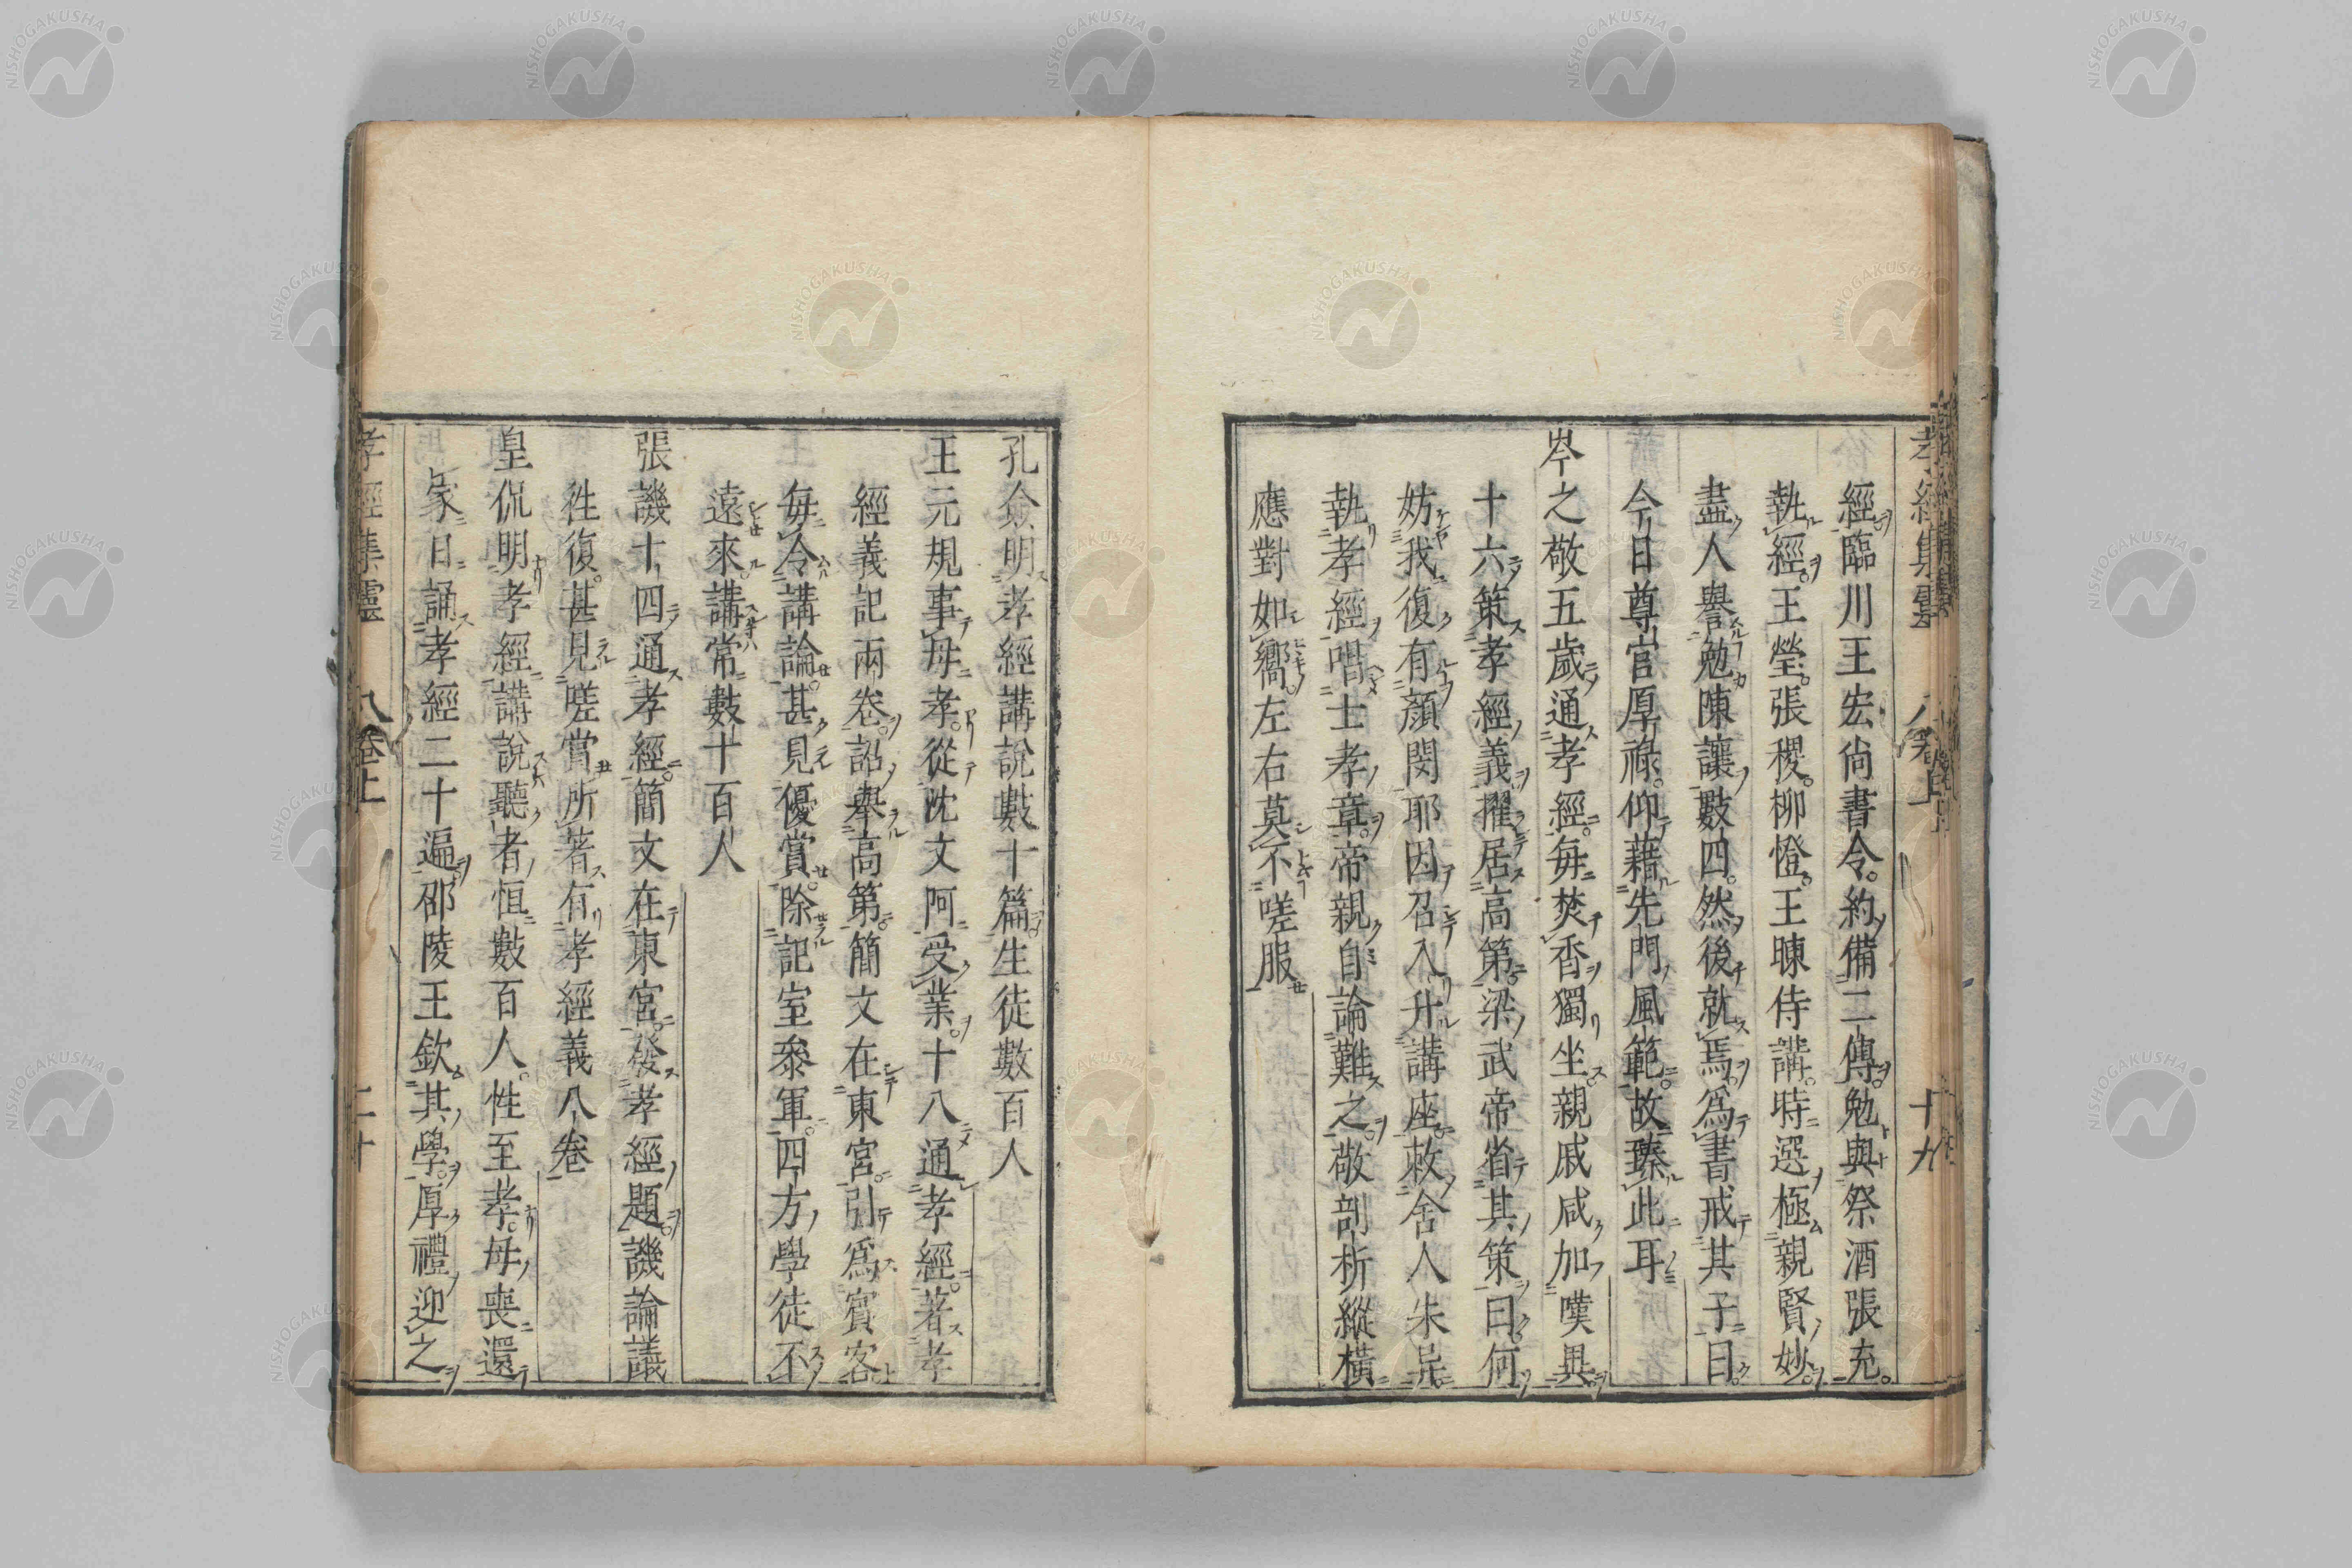 經臨川王宏尚書令約備二傳勉與祭酒張充
執經王瑩張稷柳憕王暕侍講時選極親賢妙
盡人譽勉陳讓數四然後就焉爲書戒其子曰
今日尊官厚祿仰藉先門風範故臻此耳
岑之敬五歲通孝經每焚香獨坐親戚咸加嘆異
十六策孝經義擢居高第梁武帝省其策曰何
妨我復有顏閔耶因召入升講座敕舍人朱异
執孝經唱士孝章帝親自論難之敬剖析縱橫
應對如嚮左右莫不嗟服
孔僉明孝經講說數十篇生徒數百人
王元規事母孝從沈文阿受業十八通孝經著孝
經義記兩卷詔舉高第簡文在東宮引爲賓客
每令講論甚見優賞除記室參軍四方學徒不
遠來講常數十百人
張譏十四通孝經簡文在東宮發孝經題譏論議
往復甚見嗟賞所著有孝經義八卷
皇侃明孝經講說聽者恒數百人性至孝母喪還
家日誦孝經二十遍邵陵王欽其學厚禮迎之
孝經集靈 卷上 二十
NISHOGAKUSHA